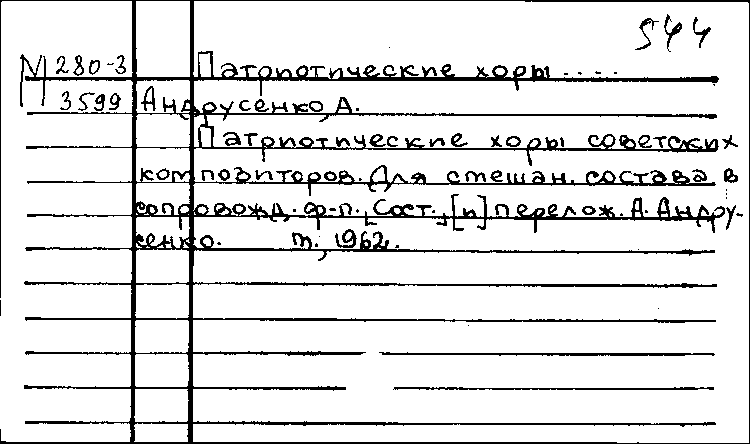 544
N 280-3 Патриотические хоры ....
3599 Андрусенко, А.
Патриотические хоры советских
композиторов. Для смешан. состава в
сопровожд. ф-п. [Сост.] [и] перелож. А. Андру-
сенко. м., 1962.